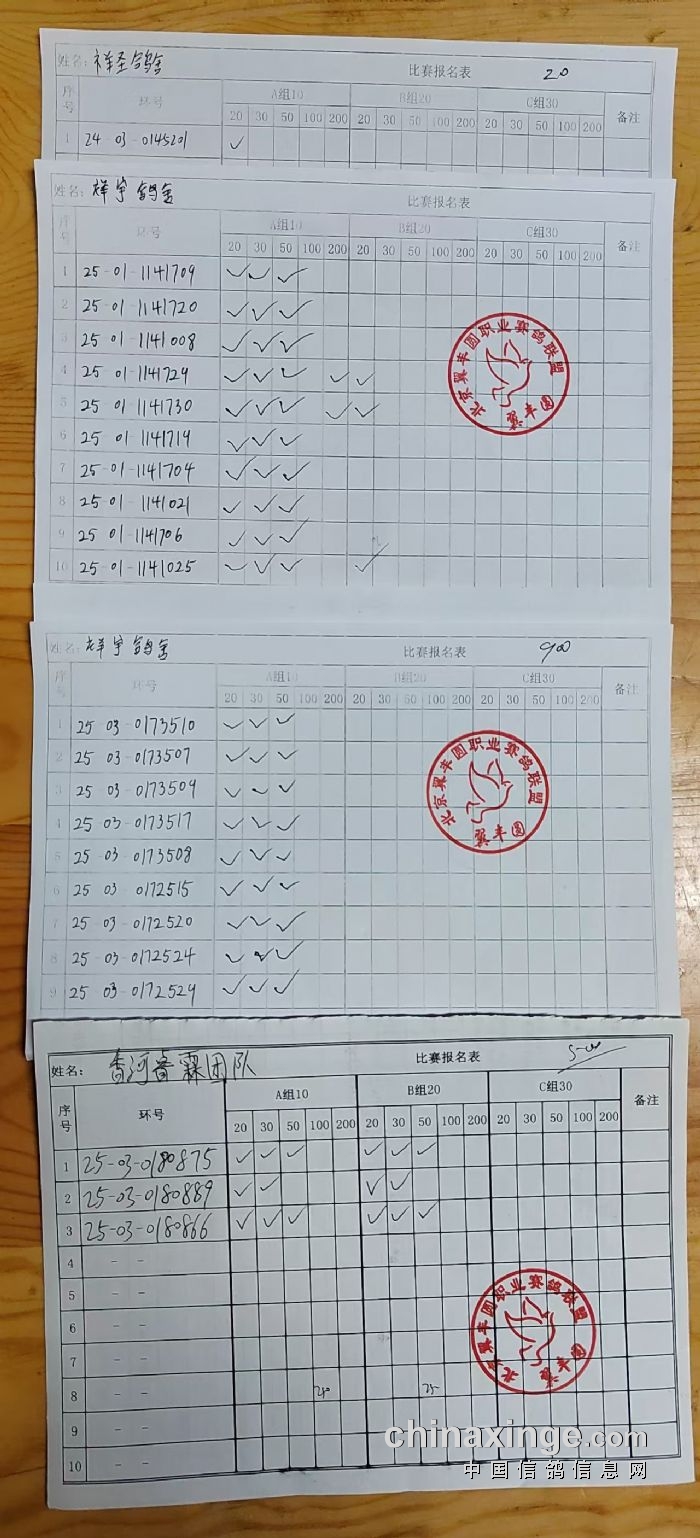 姓名: 鸽舍 比赛报名表 20
序号 环号 A组10 B组20 C组30 备注
20 30 50 100 200 20 30 50 100 200 20 30 50 100 200
1 24-03-0145201 ✓
姓名: 祥宇鸽舍 比赛报名表
序号 环号 A组10 B组20 C组30 备注
20 30 50 100 200 20 30 50 100 200 20 30 50 100 200
1 25-01-1141709 ✓ ✓ ✓
2 25-01-1141720 ✓ ✓ ✓
3 25-01-1141008 ✓ ✓ ✓
4 25-01-1141729 ✓ ✓ ✓ ✓ ✓
5 25-01-1141730 ✓ ✓ ✓ ✓ ✓
6 25-01-1141719 ✓ ✓ ✓
7 25-01-1141704 ✓ ✓ ✓
8 25-01-1141021 ✓ ✓ ✓
9 25-01-1141706 ✓ ✓ ✓
10 25-01-1141025 ✓ ✓ ✓ ✓
北京翼丰圆职业赛鸽联盟
翼丰圆
姓名: 祥宇鸽舍 比赛报名表 900
序号 环号 A组10 B组20 C组30 备注
20 30 50 100 200 20 30 50 100 200 20 30 50 100 200
1 25-03-0173510 ✓ ✓ ✓
2 25-03-0173507 ✓ ✓ ✓
3 25-03-0173509 ✓ ✓ ✓
4 25-03-0173517 ✓ ✓ ✓
5 25-03-0173508 ✓ ✓ ✓
6 25-03-0172515 ✓ ✓ ✓
7 25-03-0172520 ✓ ✓ ✓
8 25-03-0172524 ✓ ✓ ✓
9 25-03-0172529 ✓ ✓ ✓
北京翼丰圆职业赛鸽联盟
翼丰圆
姓名: 香河睿霖团队 比赛报名表
序号 环号 A组10 B组20 C组30 备注
20 30 50 100 200 20 30 50 100 200 20 30 50 100 200
1 25-03-0180875 ✓ ✓ ✓ ✓ ✓ ✓
2 25-03-0180889 ✓ ✓ ✓ ✓
3 25-03-0180866 ✓ ✓ ✓ ✓ ✓ ✓
4 - -
5 - -
6 - -
7 - -
8 - -
9 - -
10 - -
北京翼丰圆职业赛鸽联盟
翼丰圆
chinaxinge.com
中国信鸽信息网